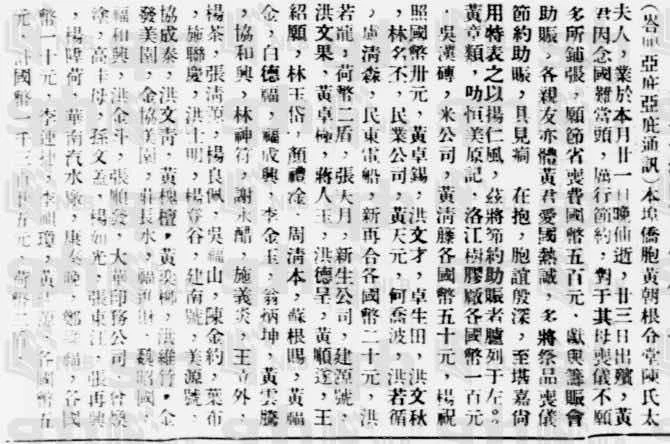 (峇眼亞庇亞庇通訊)本埠僑胞黃朝根令堂陳氏太
夫人,業於本月廿一日晚仙逝,廿三日出殯,黃
君因念國難當頭,厲行節約,對于其母喪儀不願
多所鋪張,願節省喪費國幣五百元,獻與籌賑會
助賑,各親友亦體黃君愛國熱誠,多將祭品喪儀
節約助賑,具見痌 在抱,胞誼殷深,至堪嘉尚
用特表之以揚仁風,茲將節約助賑者臚列于左。
黃章類,叻恒美原記,洛江樹膠廠各國幣一百元
,吳漢磚,米公司,黃清籐各國幣五十元,楊祝
照國幣卅元,黃卓錫,洪文才,卓生田,洪文秋
,林名丕,民業公司,黃天元,何喬波,洪若循
,盧清森,民東電船,新再合各國幣二十元,洪
若龍,荷幣二盾,張天月,新生公司,建源號,
洪文果,黃卓極,蔣人玉,洪德呈,黃順遠,王
紹願,林玉岱,顏禮淦,周清本,蘇根賜,黃福
金,白德福,福成興,李金玉,翁炳坤,黃雲騰
,協和興,林神符,謝永醋,施義炎,王立外,
楊茶,張清源,楊良佩,吳福山,陳金約,葉布
,施聯慶,洪士明,楊 谷,建南號,美源號,
協成泰,洪文壽,黃槐檀,黃奕柳,洪維竹,金
發美園,金協美園,莊長水, 魏昭國,
福和興,洪金斗,張順發,大華印務公司,
塗,高丰母,孫文蓋,楊如光,張東江,張再興
,楊陣荷,華南汽水廠,康 福,各國
幣一十元,李 各國幣五
元,計國幣一千三百 五元,荷幣二盾。